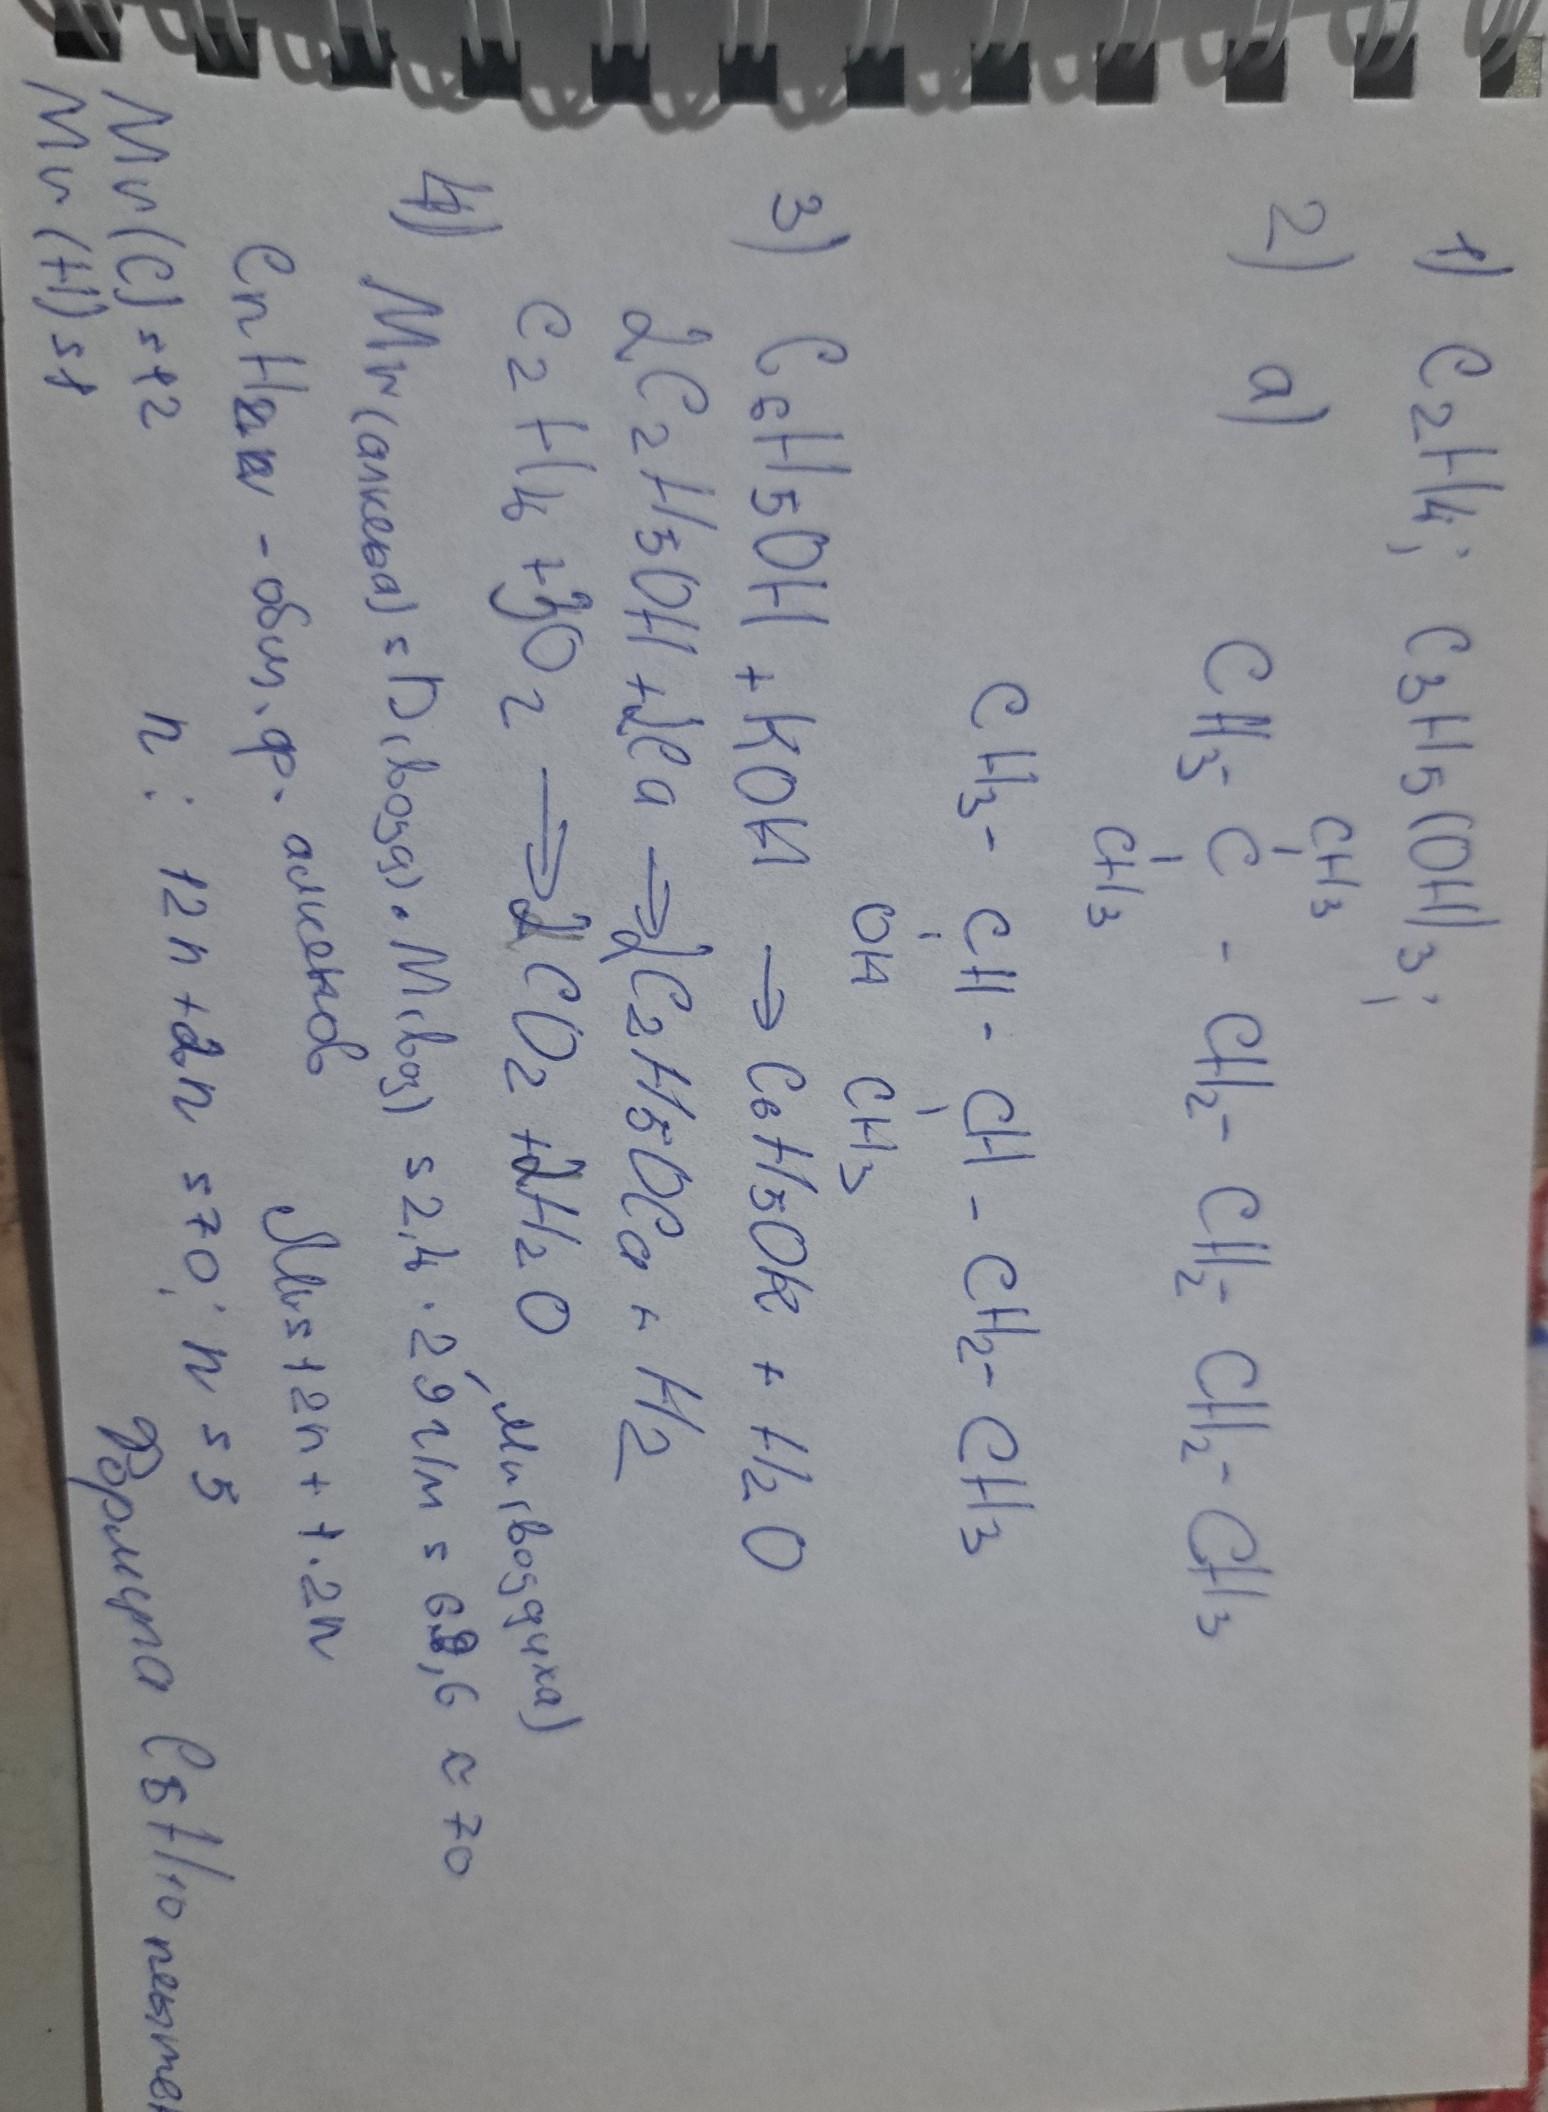 1) C2H4; C3H5(OH)3;
CH3
2) а) CH3 - C - CH2 - CH2 - CH2 - CH3
CH3
CH3 - CH - CH - CH2 - CH3
OH CH3
3) C6H5OH + KOH → C6H5OK + H2O
2C2H5OH + 2Ca → 2C2H5OCa + H2
C2H4 + 3O2 → 2CO2 + 2H2O
Mr (воздуха)
4) Mr (алкена) = D (возд) • M (воз) = 2,4 · 29 г/м = 69,6 ≈ 70
CnH2n - общ. ф. алкенов Mr = 12n + 1·2n
Mr (C) = 12 n: 12n + 2n = 70; n = 5
Mr (H) = 1 Формула C5H10 пентен